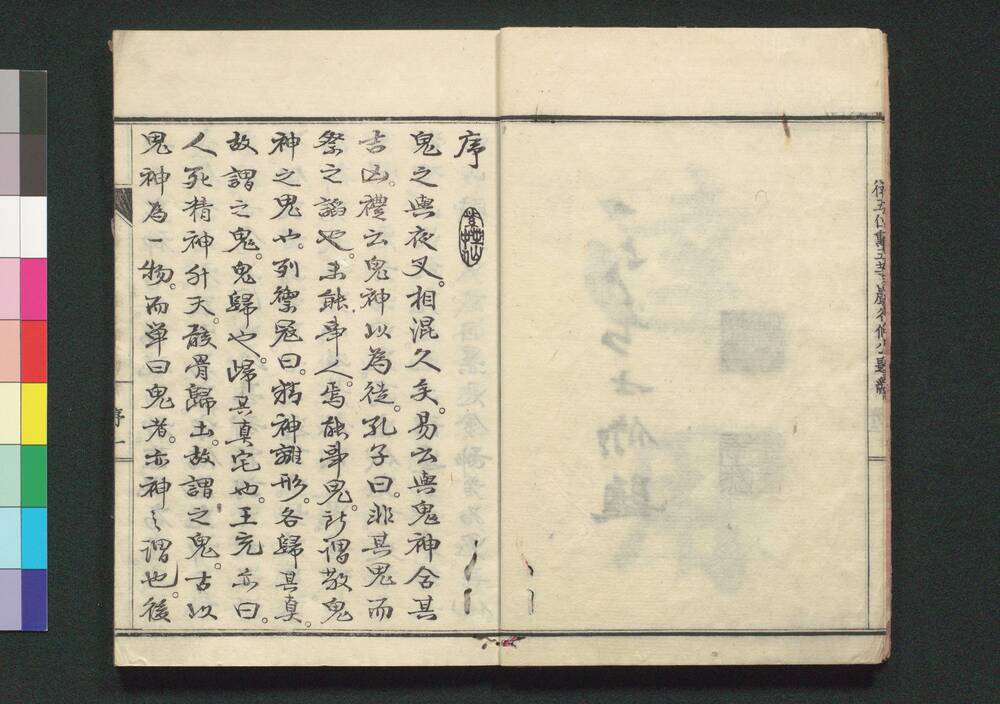 序
鬼之與夜叉。相混久矣。易云與鬼神合其
吉凶。禮云鬼神以為徒。孔子曰。非其鬼而
祭之謟也。未能事人。焉能事鬼。所謂敬鬼
神之鬼也。列禦寇曰。精神離形。各歸其真。
故謂之鬼。鬼歸也。歸其真宅也。王充亦曰。
人死精神升天。骸骨歸土。故謂之鬼。古以
鬼神為一物。而單曰鬼者。亦神之謂也。後
序一